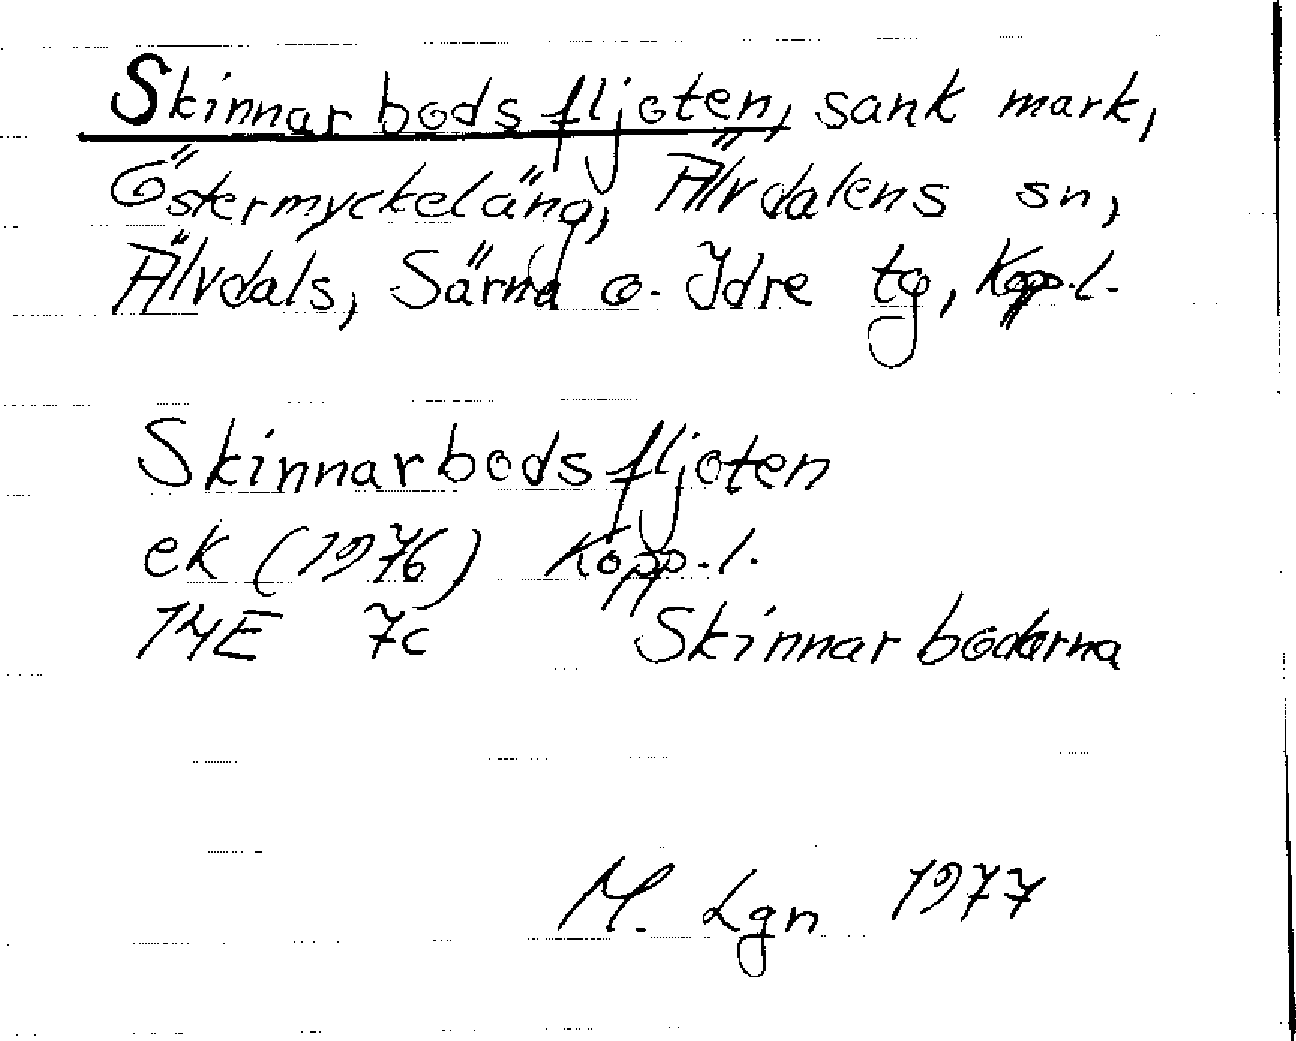 Skinnarbodsfljoten, sank mark,
Östermyckeläng, Älvdalens sn,
Älvdals, Särna o. Idre tg, Kopp.l.
Skinnarbodsfljoten
ek (1976) Kopp.l.
14E 7c Skinnarboderna
M. Lgn 1977